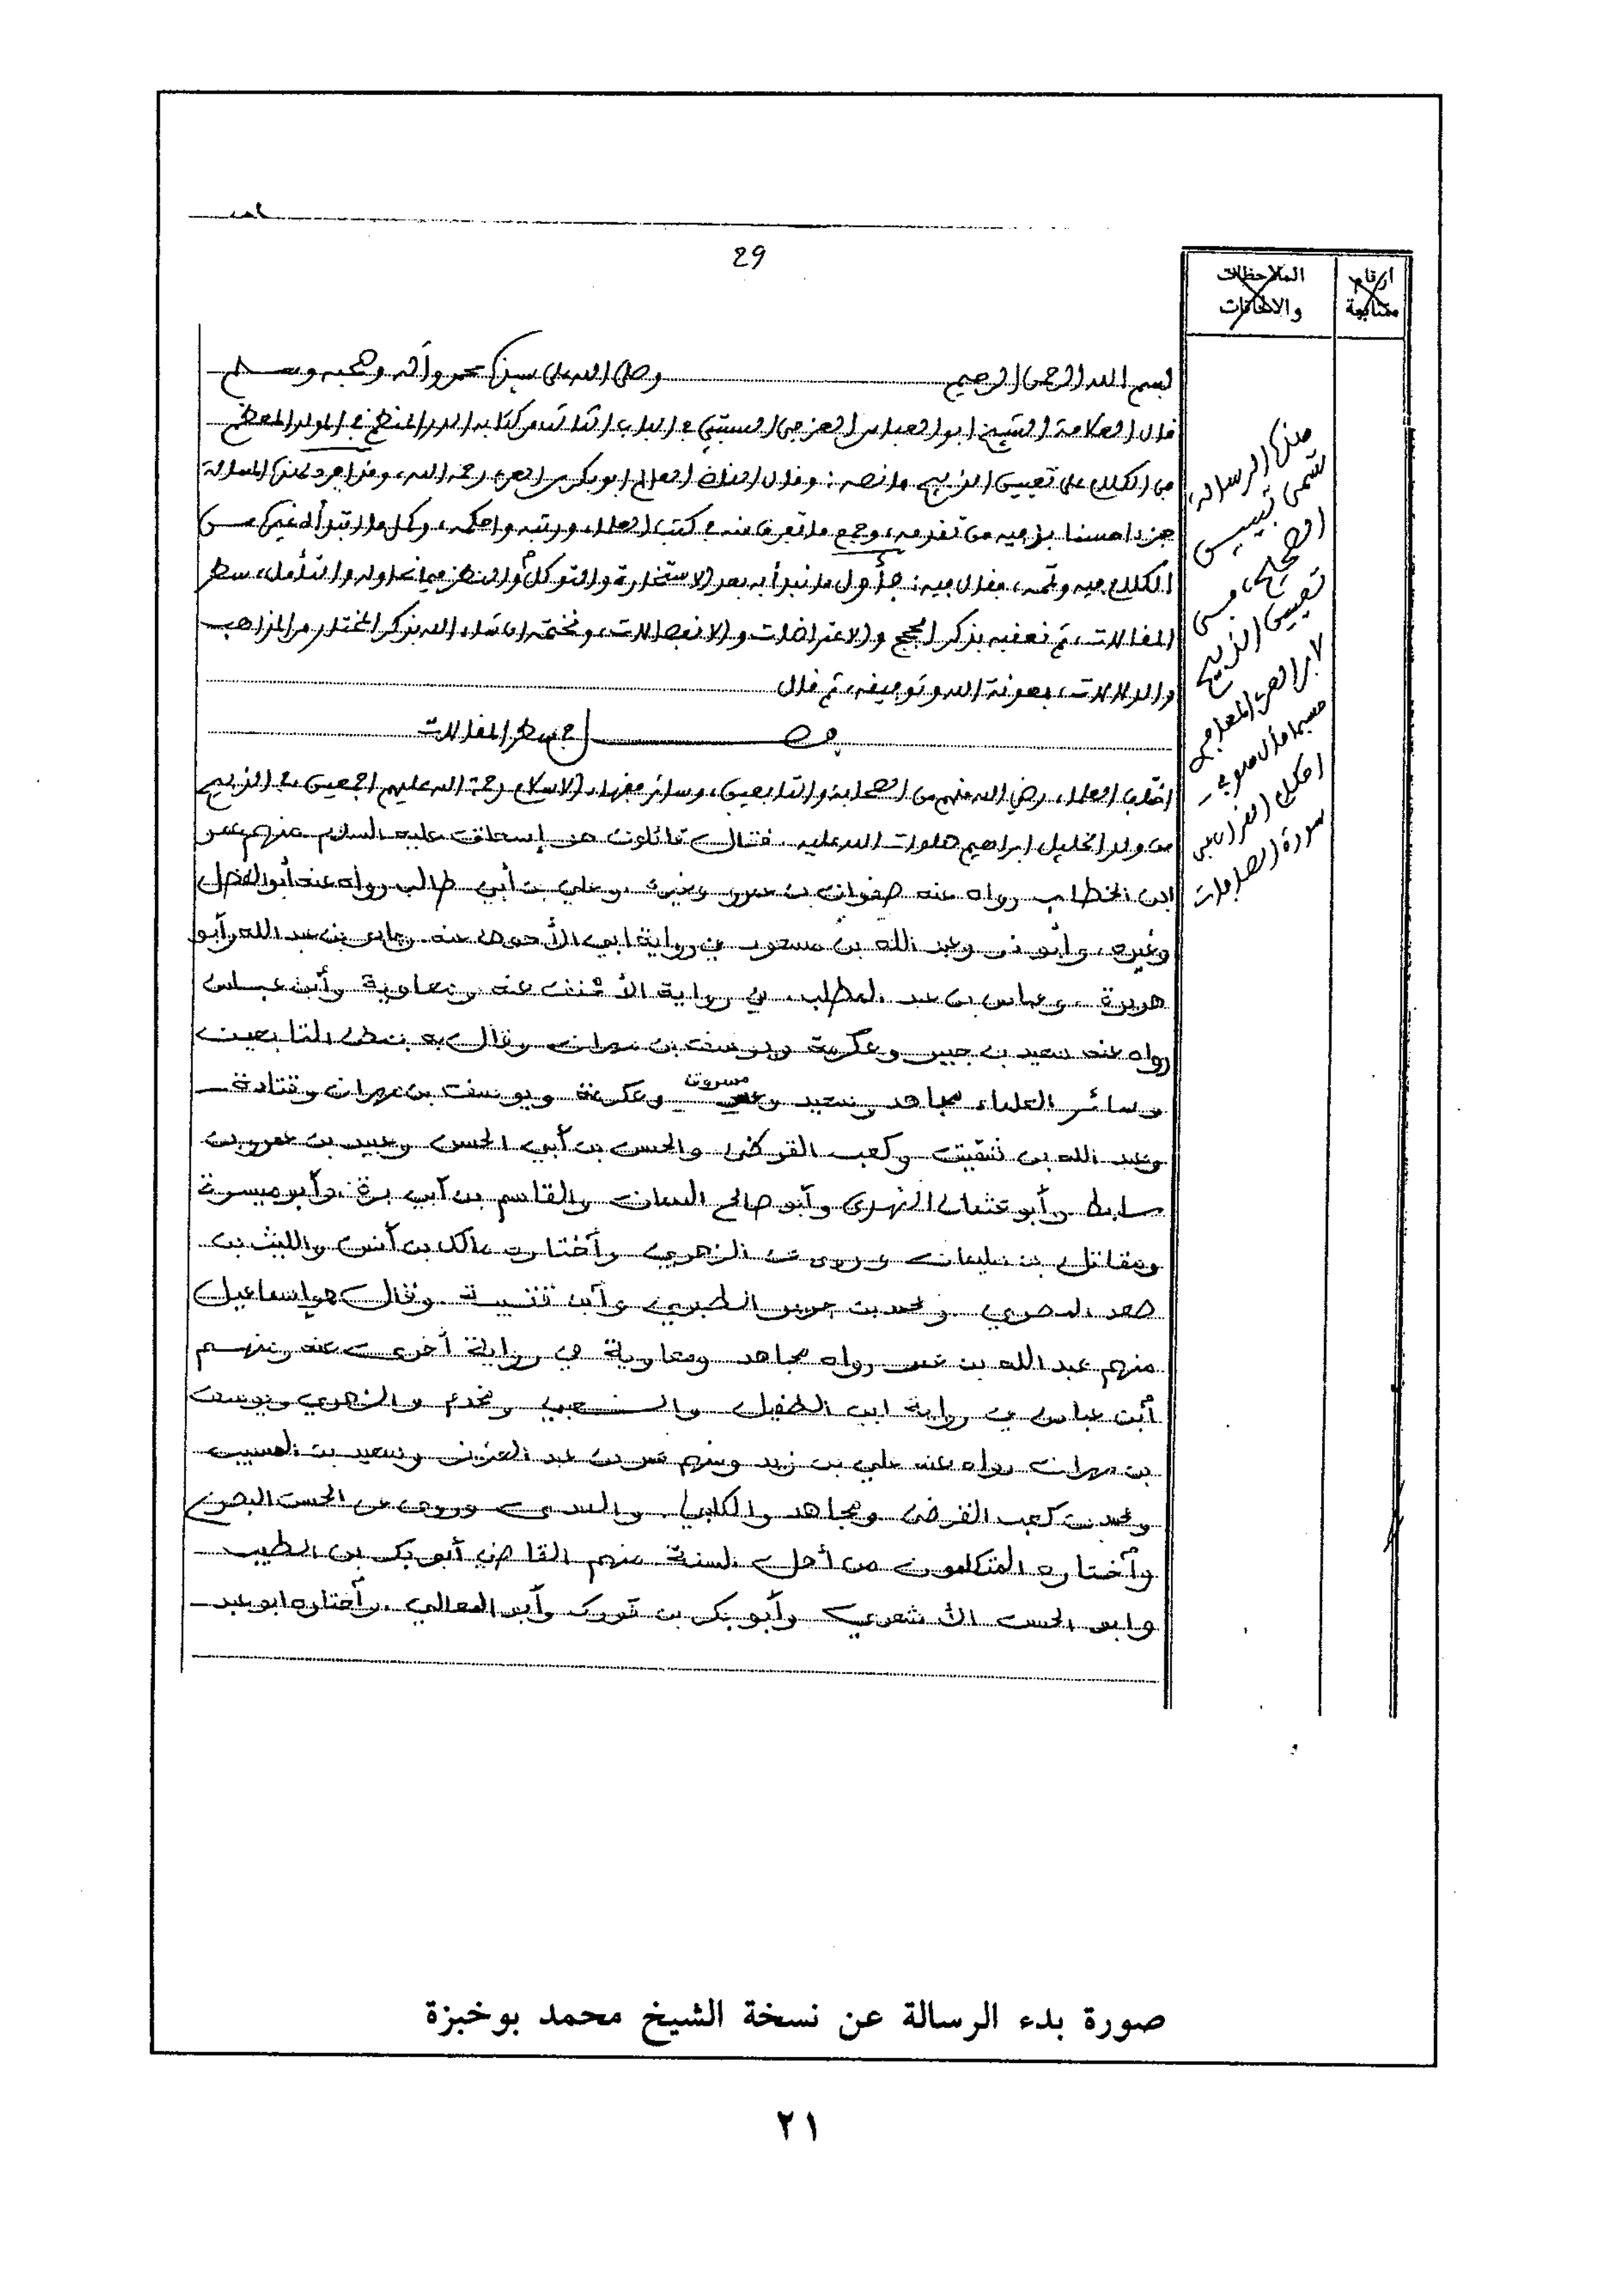 29
أرقام
متتابعة
الملاحظات
والإضافات
بسم الله الرحمن الرحيم وصلى الله على سيدنا محمد وآله وصحبه وسلم
قال العلامة الشيخ ابو العباس العزفي السبتي في الباب الثالث من كتابه الدر المنظم في المولد المعظم
في الكلام على تعيين الذبيح ما نصه: وقال الحافظ العالم ابو بكر بن العربي رحمه الله، وقد افرد لهذه المسألة
جزءا حسنا بز فيه من تقدمه، وجمع ما تفرق منه في كتب العلماء، ورتبه واحكمه، وكل ما ابتدأه غيره من
الكلام فيه وتممه، فقال فيه: فأول ما نبدأ به بعد الاستخارة والتوكل والنظر فيما نحاوله والتأمل، سطر
المقالات، ثم نعقبه بذكر الحجج والاعتراضات والانفصالات، ونختمه ان شاء الله بذكر المختار من المذاهب
والدلالات، بمعونة الله وتوفيقه، ثم قال
فصل في سطر المقالات
اختلف العلماء رضي الله عنهم من الصحابة والتابعين، وسائر فقهاء الاسلام رحمة الله عليهم اجمعين في الذبيح
من ولد الخليل ابراهيم صلوات الله عليه. فقال قائلون هو إسحاق عليه السلام منهم عمر
ابن الخطاب رواه عنه صفوان بن عمرو وغيره. وعلي بن أبي طالب رواه عنه أبو الطفيل
وغيره، وأبو ذر وعبد الله بن مسعود في رواية ابي الأحوص عنه وجابر بن عبد الله وأبو
هريرة. وعباس بن عبد المطلب. في رواية الأحنف عنه ومعاوية وأبن عباس
رواه عنه سعيد بن جبير وعكرمة ويوسف بن مهران وقال به من التابعين
وسائر العلماء مجاهد وسعيد و مسروق وعكرمة ويوسف بن مهران وقتادة
وعبد الله بن شقيق وكعب القرظي والحسن بن أبي الحسن وعبيد بن عمرو بن
سابط وأبو عثمان النهدي وأبو صالح السمان والقاسم بن أبي بزة. وأبو ميسرة
ومقاتل بن سليمان وروي عن الزهري وأختاره مالك بن أنس والليث بن
سعد المصري ومحمد بن جرير الطبري وأبن قتيبة. وقال هو إسماعيل
منهم عبد الله بن عمر رواه مجاهد ومعاوية في رواية أخرى عنه ومنهم
أبن عباس في رواية ابي الطفيل والشعبي والزهري ويوسف
بن مهران رواه عنه علي بن زيد ومنهم عمر بن عبد العزيز وسعيد بن المسيب
ومحمد بن كعب القرظي ومجاهد والكلبي. والسدي وروي عن الحسن البصري
وأختاره المتكلمون من أهل السنة منهم القاضي أبو بكر بن الطيب
وابو الحسن الأشعري وأبو بكر بن فورك وأبو المعالي. وأختاره ابو عبد
هذه الرسالة
تسمى تبيين
الصحيح، في
تعيين الذبيح
لابن العربي المعافري
احكام القرآن من
سورة الصافات
صورة بدء الرسالة عن نسخة الشيخ محمد بوخبزة
٢١